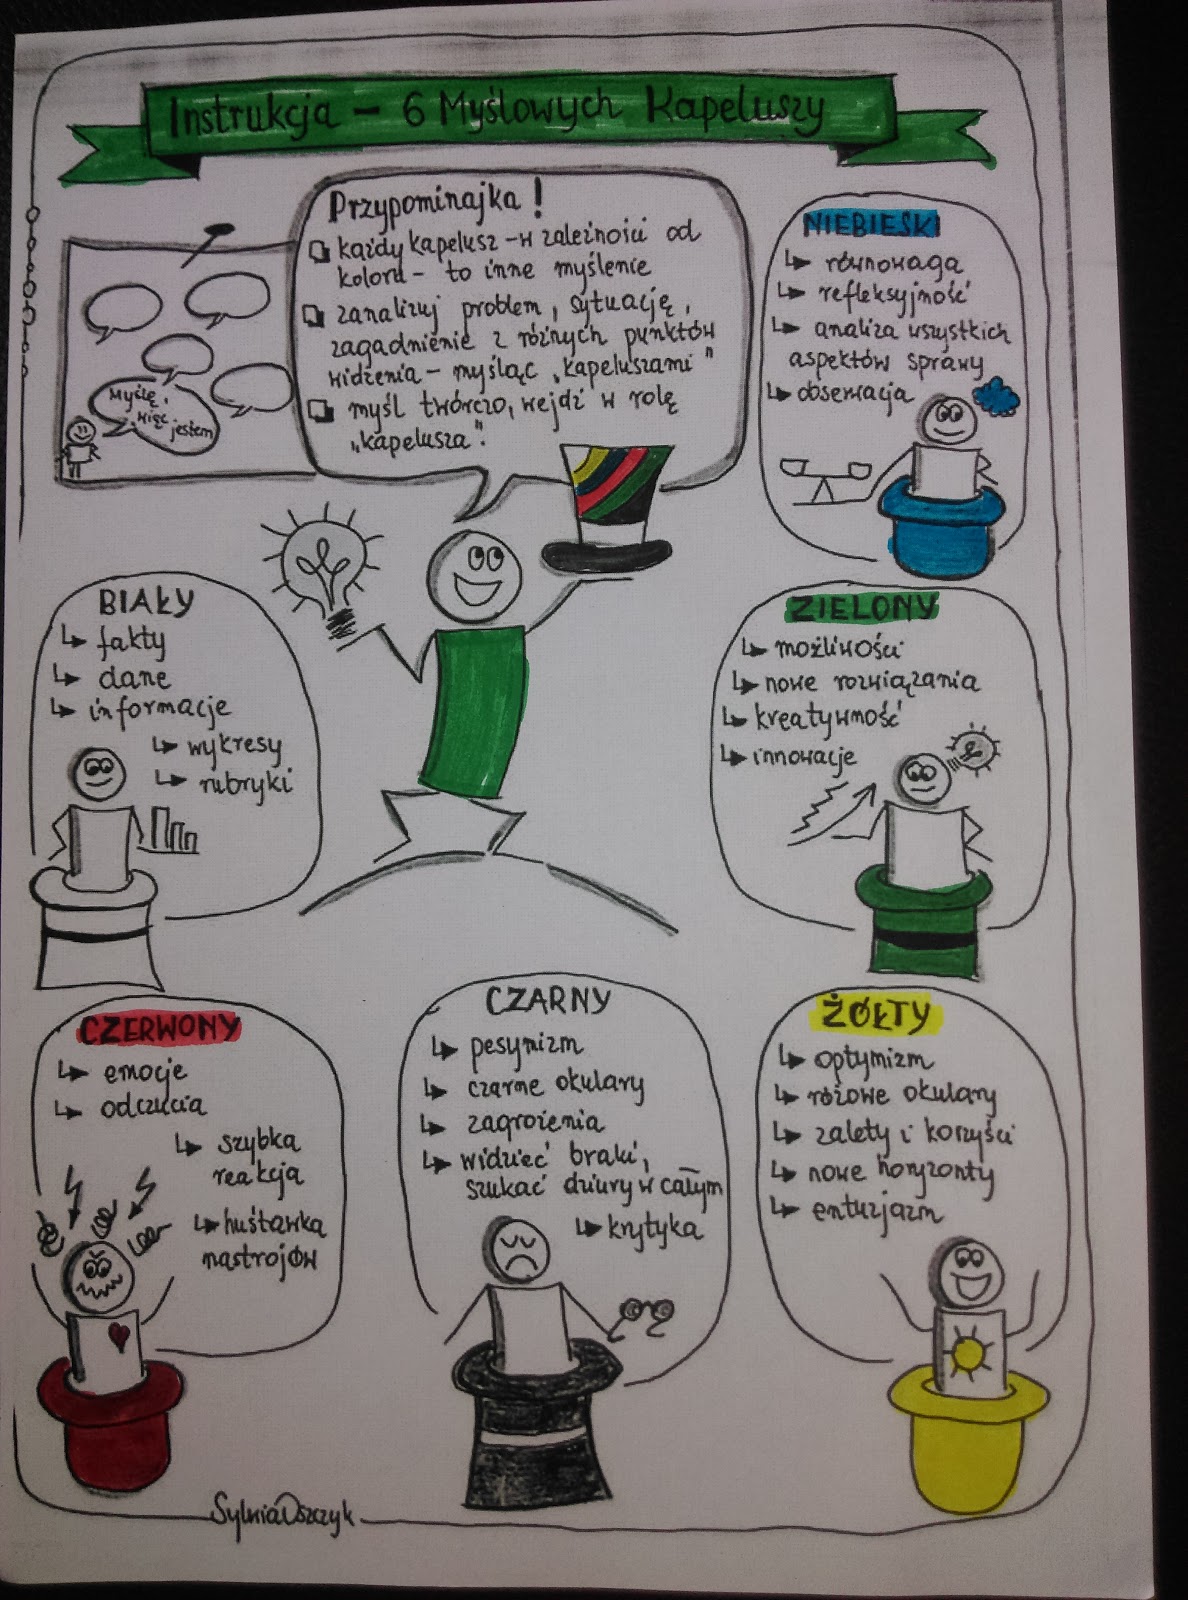 Instrukcja - 6 Myślowych Kapeluszy
Przypominajka!
każdy kapelusz - w zależności od
koloru - to inne myślenie
zanalizuj problem, sytuację,
zagadnienie z różnych punktów
widzenia - myśląc „kapeluszami"
myśl twórczo, wejdź w rolę
„kapelusza".
Myślę,
więc
jestem
NIEBIESKI
równowaga
refleksyjność
analiza wszystkich
aspektów sprawy
obserwacja
BIAŁY
fakty
dane
informacje
wykresy
rubryki
ZIELONY
możliwości
nowe rozwiązania
kreatywność
innowacje
CZERWONY
emocje
odczucia
szybka
reakcja
huśtawka
nastrojów
CZARNY
pesymizm
czarne okulary
zagrożenia
widzieć braki,
szukać dziury w całym
krytyka
ŻÓŁTY
optymizm
różowe okulary
zalety i korzyści
nowe horyzonty
entuzjazm
Sylwia Oszczyk